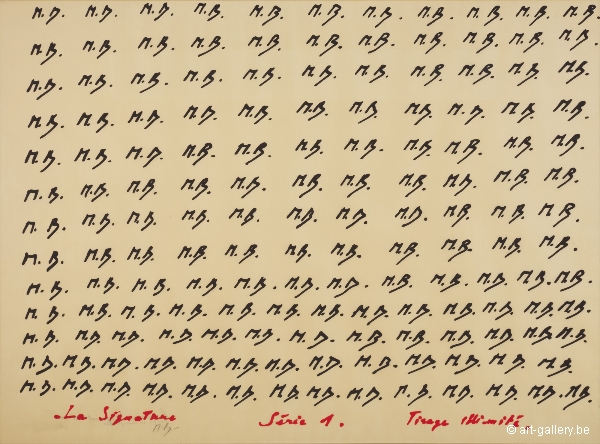 M.B. M.B. M.B. M.B. M.B. M.B. M.B. M.B. M.B. M.B. M.B.
M.B. M.B. M.B. M.B. M.B. M.B. M.B. M.B. M.B. M.B. M.B.
M.B. M.B. M.B. M.B. M.B. M.B. M.B. M.B. M.B. M.B. M.B.
M.B. M.B. M.B. M.B. M.B. M.B. M.B. M.B. M.B. M.B. M.B.
M.B. M.B. M.B. M.B. M.B. M.B. M.B. M.B. M.B. M.B. M.B.
M.B. M.B. M.B. M.B. M.B. M.B. M.B. M.B. M.B. M.B. M.B.
M.B. M.B. M.B. M.B. M.B. M.B. M.B. M.B. M.B. M.B. M.B.
M.B. M.B. M.B. M.B. M.B. M.B. M.B. M.B. M.B. M.B. M.B.
M.B. M.B. M.B. M.B. M.B. M.B. M.B. M.B. M.B. M.B. M.B. M.B.
M.B. M.B. M.B. M.B. M.B. M.B. M.B. M.B. M.B. M.B. M.B. M.B. M.B.
M.B. M.B. M.B. M.B. M.B. M.B. M.B. M.B. M.B. M.B. M.B. M.B. M.B.
M.B. M.B. M.B. M.B. M.B. M.B. M.B. M.B. M.B. M.B. M.B. M.B. M.B.
M.B. M.B. M.B. M.B. M.B. M.B. M.B. M.B. M.B. M.B. M.B. M.B. M.B. M.B.
La Signature Série 1. Tirage illimité.
M.B.
© art-gallery.be